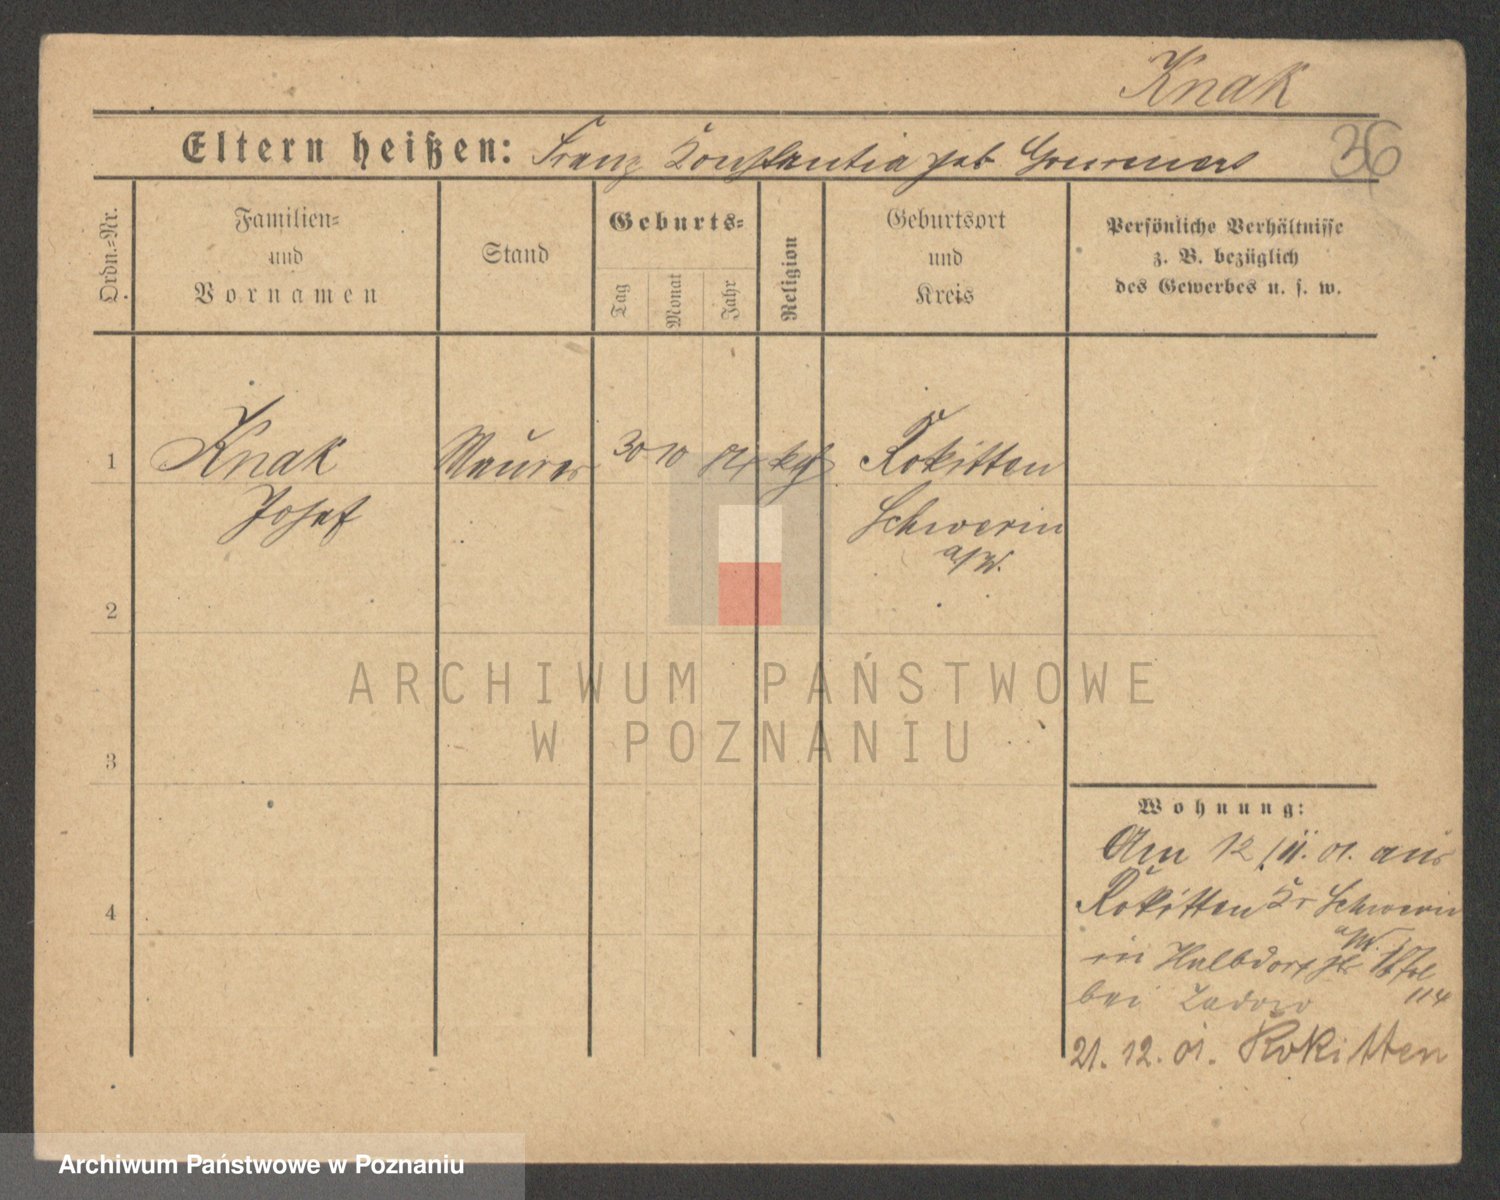 Knak
36
Eltern heißen: Franz Konstantia geb
Ordn.=Nr.
Familien=
und
Vornamen
Stand
Geburts=
Tag
Monat
Jahr
Religion
Geburtsort
und
Kreis
Persönliche Verhältnisse
z. B. bezüglich
des Gewerbes u. s. w.
1
Knak
Maurer
30
10
Rokitten
Josef
Schwerin
a/W.
2
ARCHIWUM PAŃSTWOWE
W POZNANIU
3
Wohnung:
Am 12/11. 01. aus
Rokitten Kr Schwerin
a/W.
in Halbdorfstr
bei
114
21. 12. 01. Rokitten
4
Archiwum Państwowe w Poznaniu